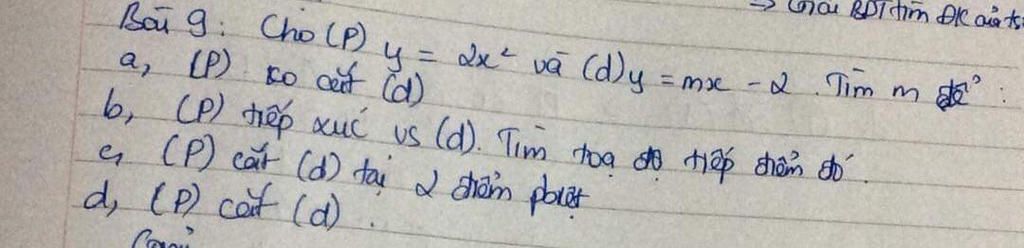 → Giải BPT tìm ĐK của
Bài 9: Cho (P) y = 2x² và (d) y = mx - 2. Tìm m để :
a, (P) ko cắt (d)
b, (P) tiếp xúc vs (d). Tìm toạ độ tiếp điểm đó.
c, (P) cắt (d) tại 2 điểm pbiệt
d, (P) cắt (d).